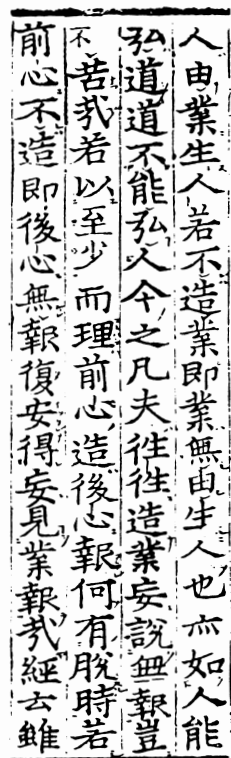 人由業生人若不造業即業無由生人也亦如人能
弘道道不能弘人今之凡夫徃徃造業妄說無報豈
不苦㢤若以至少而理前心造後心報何有脫時若
前心不造即後心無報復安得妄見業報㢤經云雖